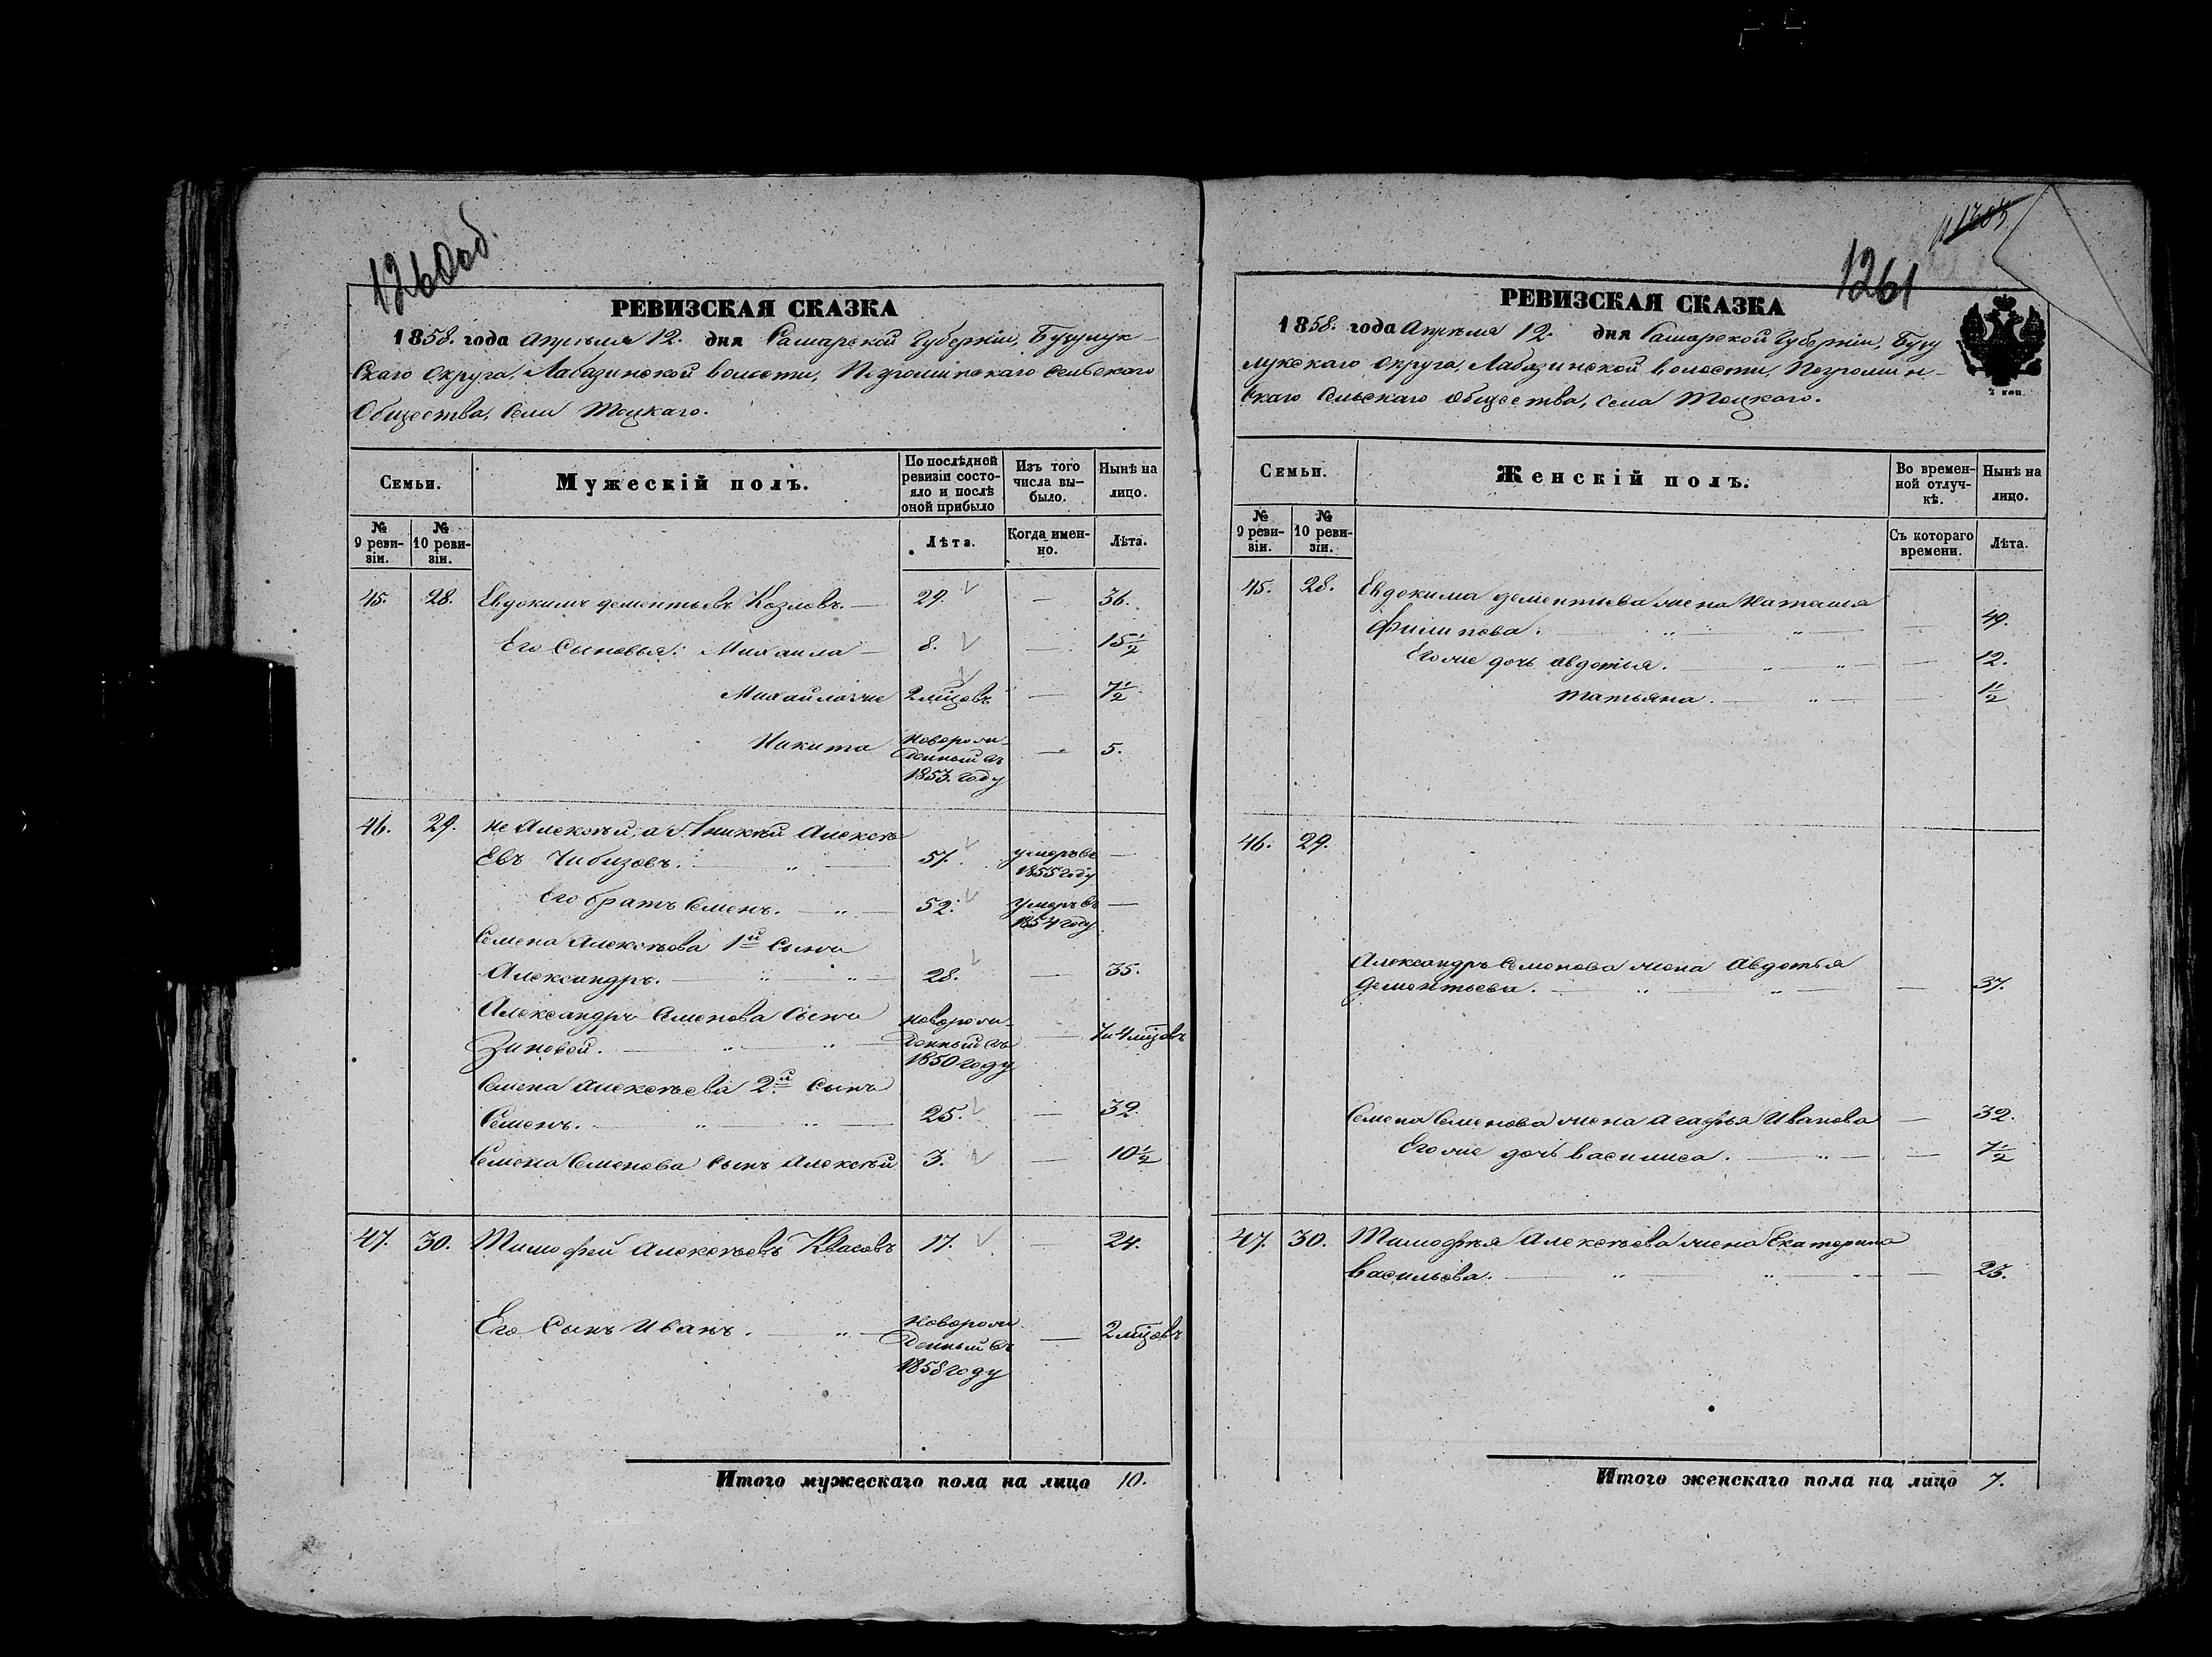 1260 об.
РЕВИЗСКАЯ СКАЗКА
1858. года Апрѣля 12. дня Самарской Губерніи, Бузулук-
скаго Округа, Лабазинской волости, Погроминскаго Сельскаго
Общества, Села Тоцкаго.
Семьи.
Мужескій полъ.
По послѣдней ревизіи состо-яло и послѣ оной прибыло
Изъ того числа вы-было.
Нынѣ на лицо.
№ 9 реви-зіи.
№ 10 реви-зіи.
Лѣта.
Когда имен-но.
Лѣта.
45. 28. Евдокимъ дементьевъ Козловъ. — 29. — 36.
Его Сыновья: Михаила — 8. — 15 1/2
Михайла же 2 мѣсцовъ — 7 1/2
Никита Новорож-денный въ 1853. году — 5.
46. 29. Не Алексѣй, а Аникѣй Алексѣ
евъ Чибизовъ. 57. умеръ въ 1855 году —
Его братъ Семенъ. 52. умеръ въ 1854 году —
Семена Алексѣева 1й Сынъ
Александръ. 28. — 35.
Александра Семенова Сынъ
Зиновей. новорож-денный въ 1850 году — 7 и 4 мѣсцовъ
Семена Алексѣева 2й Сынъ
Семенъ. 25. — 32.
Семена Семенова сынъ Алексѣй 3. — 10 1/2
47. 30. Тимофей Алексѣевъ Квасовъ 17. — 24.
Его Сынъ Иванъ. Новорож-денный въ 1858 году — 2 мѣсцовъ
Итого мужескаго пола на лицо 10.
1261
РЕВИЗСКАЯ СКАЗКА
1858. года Апрѣля 12. дня Самарской Губерніи, Бузу
лукскаго Округа, Лабазинской волости, Погромин-
скаго Сельскаго Общества, Села Тоцкаго.
2 коп.
Семьи.
Женскій полъ.
Во времен-ной отлуч-кѣ.
Нынѣ на лицо.
№ 9 реви-зіи.
№ 10 реви-зіи.
Съ котораго времени.
Лѣта.
45. 28. Евдокима дементьева жена Наталья
Филипова. — 49.
Его же дочь Авдотья. — 12.
Татьяна. — 1 1/2
46. 29.
Александръ Семенова жена Авдотья
Дементьева. — 37.
Семена Семенова жена Агафья Иванова — 32.
Его же дочь Василиса. — 7 1/2
47. 30. Тимофея Алексѣева жена Екатерина
Васильева. — 23.
Итого женскаго пола на лицо 7.